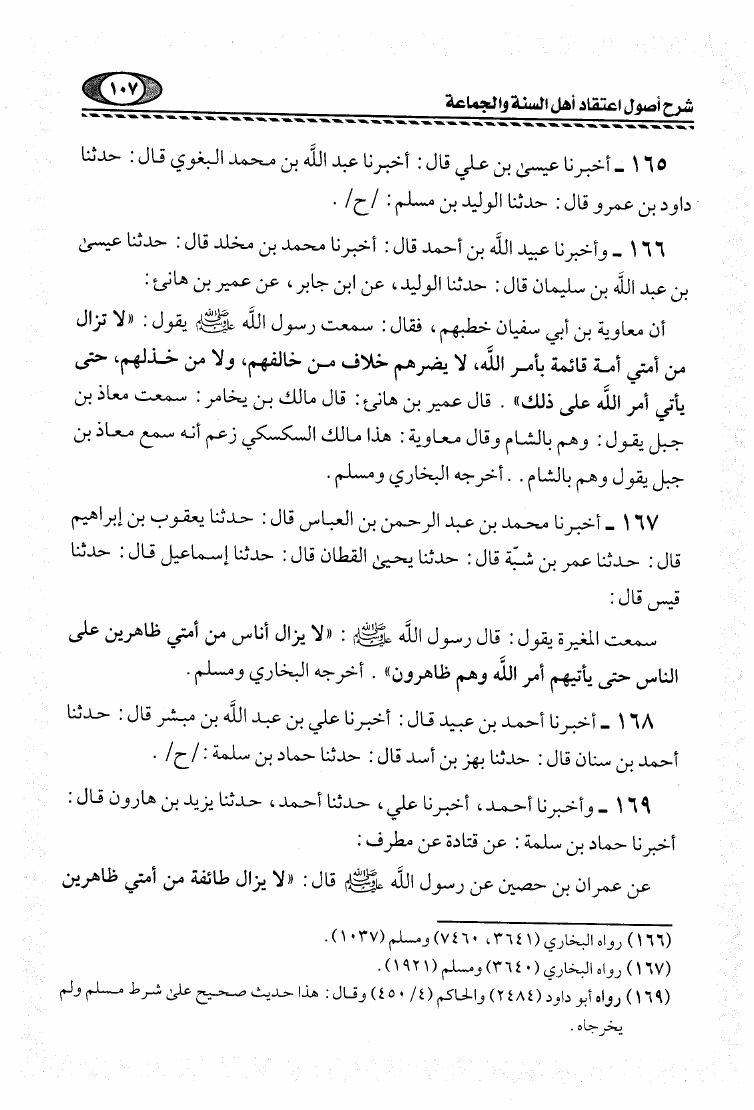 شرح أصول اعتقاد أهل السنة والجماعة
١٠٧
١٦٥ ـ أخبرنا عيسىٰ بن علي قال: أخبرنا عبد اللَّه بن محمد البغوي قال: حدثنا
داود بن عمرو قال: حدثنا الوليد بن مسلم: /ح/ .
١٦٦ ـ وأخبرنا عبيد اللَّه بن أحمد قال: أخبرنا محمد بن مخلد قال: حدثنا عيسىٰ
بن عبد اللَّه بن سليمان قال: حدثنا الوليد، عن ابن جابر، عن عمير بن هانئ:
أن معاوية بن أبي سفيان خطبهم، فقال: سمعت رسول اللَّه ﷺ يقول: «لا تزال
من أمتي أمة قائمة بأمر اللَّه، لا يضرهم خلاف من خالفهم، ولا من خذلهم، حتى
يأتي أمر اللَّه على ذلك» . قال عمير بن هانئ: قال مالك بن يخامر: سمعت معاذ بن
جبل يقول: وهم بالشام وقال معاوية: هذا مالك السكسكي زعم أنه سمع معاذ بن
جبل يقول وهم بالشام. . أخرجه البخاري ومسلم.
١٦٧ ـ أخبرنا محمد بن عبد الرحمن بن العباس قال: حدثنا يعقوب بن إبراهيم
قال: حدثنا عمر بن شبّة قال: حدثنا يحيىٰ القطان قال: حدثنا إسماعيل قال: حدثنا
قيس قال:
سمعت المغيرة يقول: قال رسول اللَّه ﷺ : «لا يزال أناس من أمتي ظاهرين على
الناس حتى يأتيهم أمر اللَّه وهم ظاهرون» . أخرجه البخاري ومسلم.
١٦٨ ـ أخبرنا أحمد بن عبيد قال: أخبرنا علي بن عبد اللَّه بن مبشر قال: حدثنا
أحمد بن سنان قال: حدثنا بهز بن أسد قال: حدثنا حماد بن سلمة: /ح/ .
١٦٩ ـ وأخبرنا أحمد، أخبرنا علي، حدثنا أحمد، حدثنا يزيد بن هارون قال:
أخبرنا حماد بن سلمة: عن قتادة عن مطرف:
عن عمران بن حصين عن رسول اللَّه ﷺ قال: «لا يزال طائفة من أمتي ظاهرين
(١٦٦) رواه البخاري (٣٦٤١، ٧٤٦٠) ومسلم (١٠٣٧).
(١٦٧) رواه البخاري (٣٦٤٠) ومسلم (١٩٢١).
(١٦٩) رواه أبو داود (٢٤٨٤) والحاكم (٤/ ٤٥٠) وقال: هذا حديث صحيح علىٰ شرط مسلم ولم
يخرجاه.